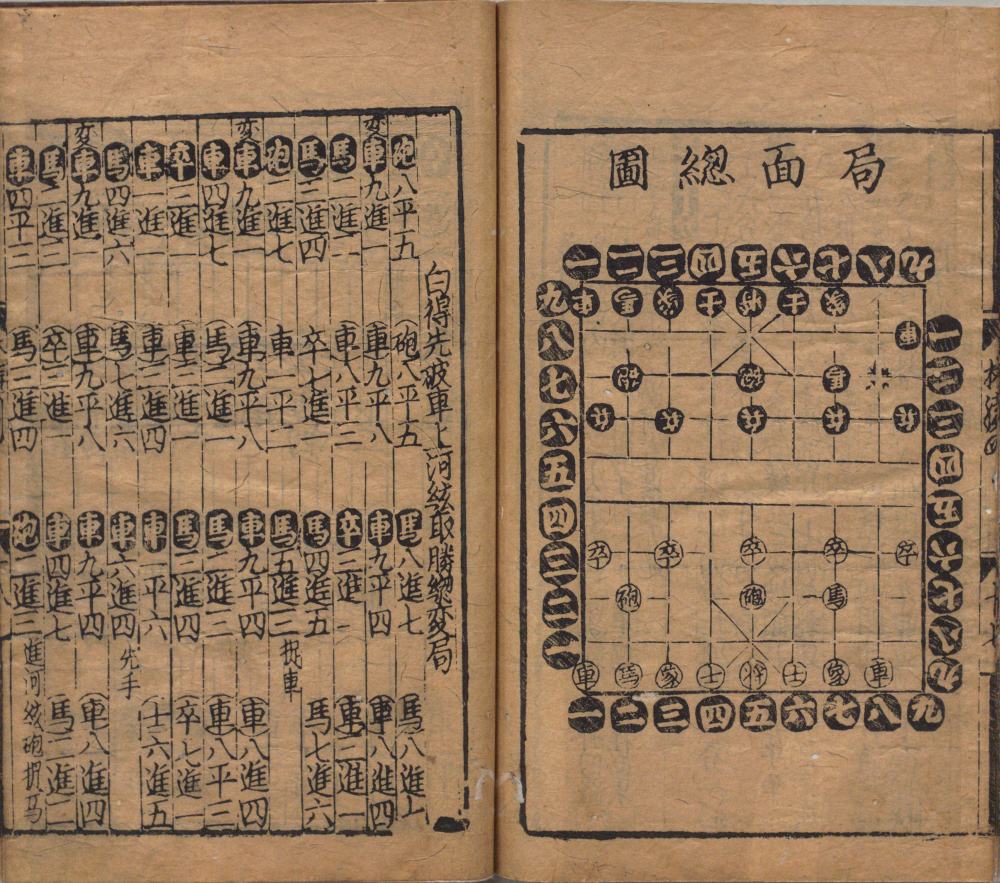 局面緫圖
一二三四五六七八九
車馬象士將士象
車
砲砲馬
兵兵兵兵兵
九八七六五四三二一
一二三四五六七八九
卒卒卒卒卒
砲砲馬
車馬象士將士象車
一二三四五六七八九
白得先破車上河絃取勝緫変局
砲八平五 砲八平五 馬八進七 馬八進七
変車九進一 車九平八 車九平四 車八進四
馬二進三 車八平三 卒三進一 車三進一
馬三進四 卒七進一 馬四進五 馬七進六
砲二進七 車一平二 馬五進三 捉車
変車九進一 車九平八 車九平四 車八進四
車四進七 馬二進一 馬二進三 車八平三
卒三進一 車三進一 馬三進四 卒七進一
車一進一 車三進四 車一平六 士六進五
馬四進六 馬七進六 車六進四 先手
変車九進一 車九平八 車九平四 車八進四
馬二進三 卒三進一 車四進七 馬二進二
車四平三 馬三進四 砲二進三 進河絃砲捉馬